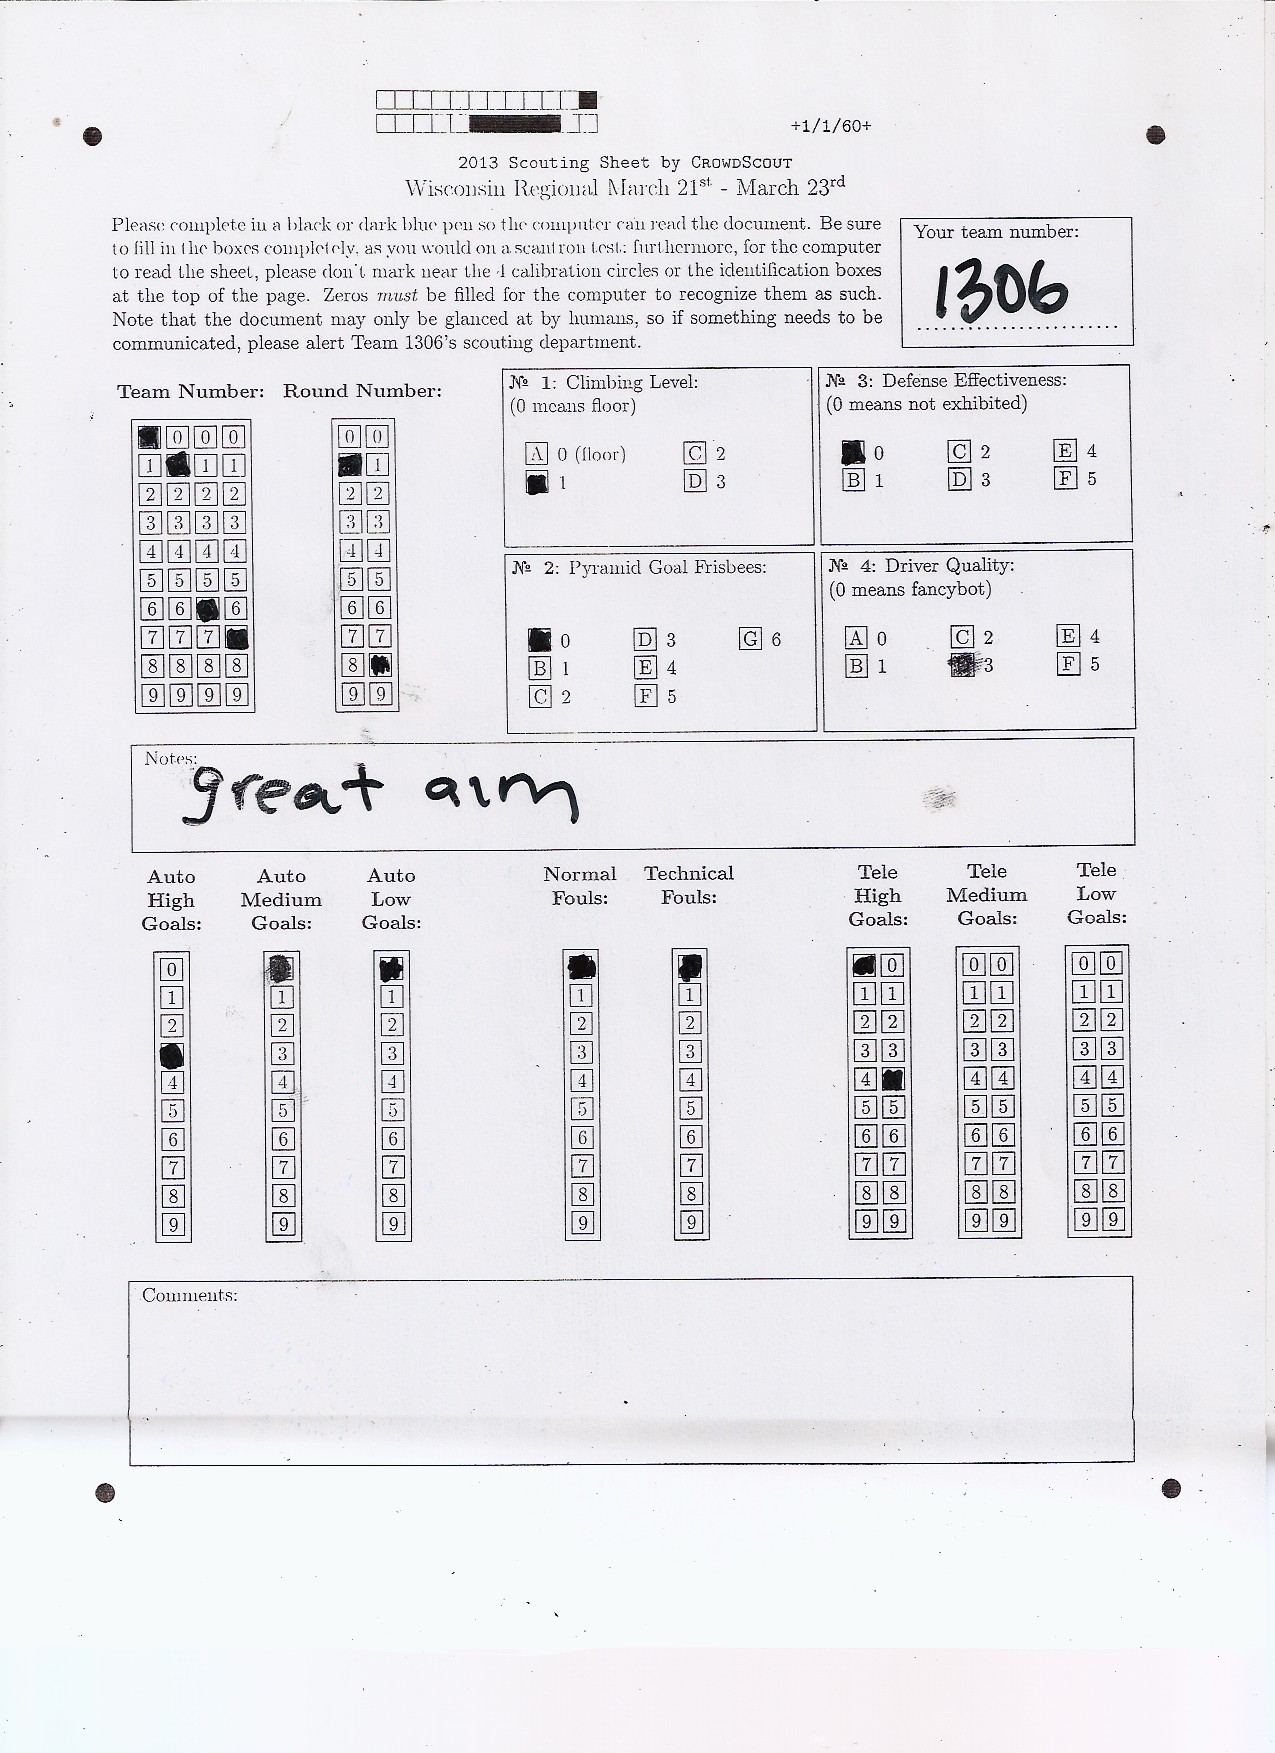 +1/1/60+
2013 Scouting Sheet by CROWDSCOUT
Wisconsin Regional March 21st - March 23rd
Please complete in a black or dark blue pen so the computer can read the document. Be sure
to fill in the boxes completely, as you would on a scantron test; furthermore, for the computer
to read the sheet, please don't mark near the 4 calibration circles or the identification boxes
at the top of the page. Zeros must be filled for the computer to recognize them as such.
Note that the document may only be glanced at by humans, so if something needs to be
communicated, please alert Team 1306's scouting department.
Your team number:
1306
Team Number: Round Number:
0 0 0 0 0
1 1 1 1
2 2 2 2 2 2
3 3 3 3 3 3
4 4 4 4 4 4
5 5 5 5 5 5
6 6 6 6 6
7 7 7 7 7
8 8 8 8 8
9 9 9 9 9 9
№ 1: Climbing Level:
(0 means floor)
A 0 (floor) C 2
1 D 3
№ 3: Defense Effectiveness:
(0 means not exhibited)
0 C 2 E 4
B 1 D 3 F 5
№ 2: Pyramid Goal Frisbees:
0 D 3 G 6
B 1 E 4
C 2 F 5
№ 4: Driver Quality:
(0 means fancybot)
A 0 C 2 E 4
B 1 3 F 5
Notes:
great aim
Auto High Goals: Auto Medium Goals: Auto Low Goals: Normal Fouls: Technical Fouls: Tele High Goals: Tele Medium Goals: Tele Low Goals:
0 0 0 0 0 0
1 1 1 1 1 1 1 1 1 1 1
2 2 2 2 2 2 2 2 2 2 2
3 3 3 3 3 3 3 3 3 3
4 4 4 4 4 4 4 4 4 4
5 5 5 5 5 5 5 5 5 5 5
6 6 6 6 6 6 6 6 6 6 6
7 7 7 7 7 7 7 7 7 7 7
8 8 8 8 8 8 8 8 8 8 8
9 9 9 9 9 9 9 9 9 9 9
Comments: